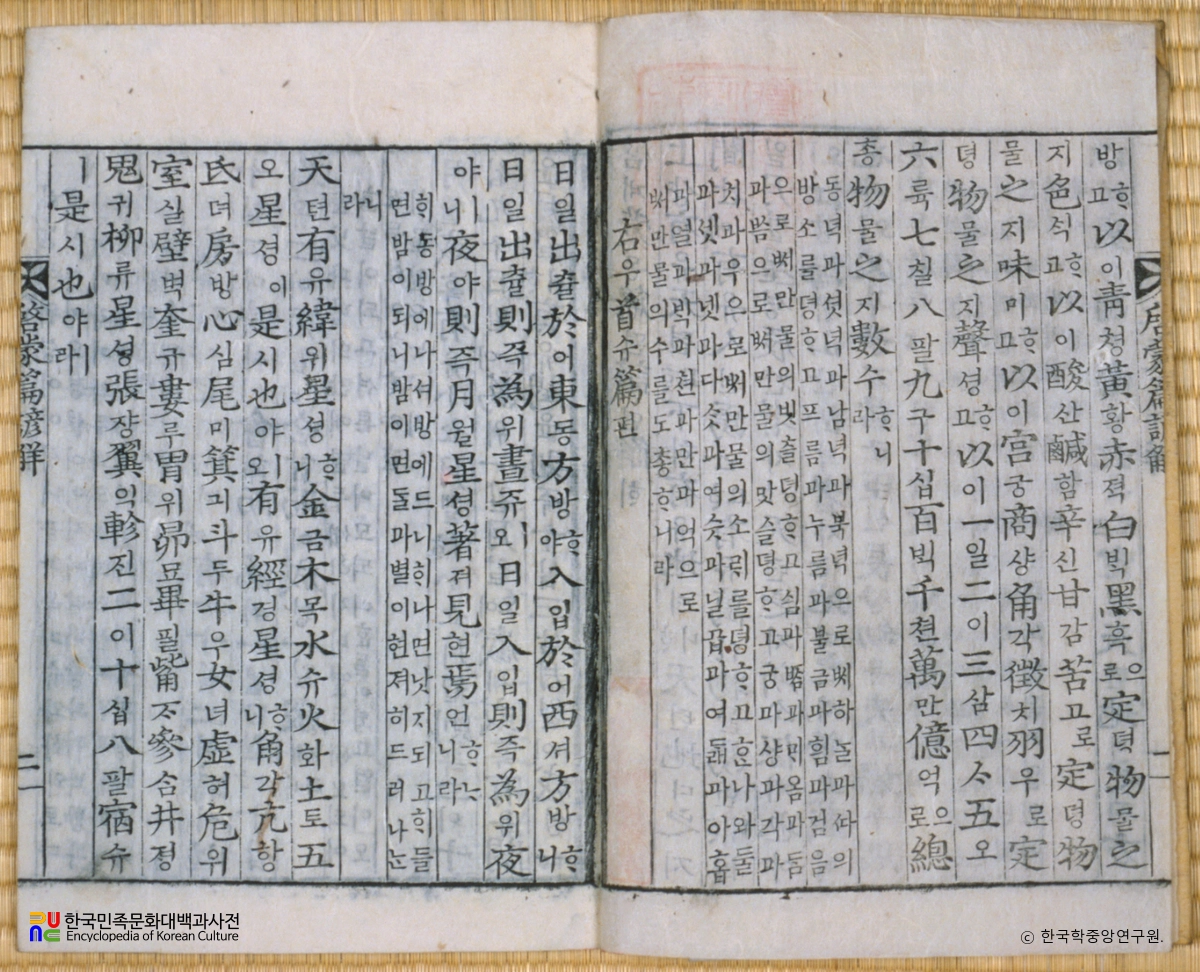 방ᄒᆞ고以이靑쳥黃황赤젹白ᄇᆡᆨ黑흑으로定뎡物믈之
지色ᄉᆡᆨᄒᆞ고以이酸산鹹함辛신甘감苦고로定뎡物
물之지味미ᄒᆞ고以이宮궁商샹角각徵치羽우로定
뎡物물之지聲셩ᄒᆞ고以이一일二이三삼四ᄉᆞ五오
六륙七칠八팔九구十십百ᄇᆡᆨ千쳔萬만億억으로總
총物물之지數수ᄒᆞ니라
동녁과셧녁과남녁과북녁으로ᄡᅥ하ᄂᆞᆯ과ᄯᅡ의
방소를뎡ᄒᆞ고프름과누름과불금과힘과검음
으로ᄡᅥ만물의빗츨뎡ᄒᆞ고심과ᄧᆞᆷ과ᄆᆡ옴과ᄃᆞᆷ
과ᄡᅳᆷ으로ᄡᅥ만물의맛슬뎡ᄒᆞ고궁과샹과각과
치과우으로ᄡᅥ만물의소ᄅᆡ를뎡ᄒᆞ고ᄒᆞᆫ나와둘
과셋과넷과다ᄉᆞᆺ과여ᄉᆞᆺ과닐곱과여ᄃᆞᆲ과아홉
과열과ᄇᆡᆨ과쳔과만과억으로
ᄡᅥ만물의수를도총ᄒᆞ니라
右우首슈篇편
日일出츌於어東동方방ᄒᆞ야入입於어西셔方방ᄒᆞ니
日일出츌則즉爲위晝쥬ㅣ오日일入입則즉爲위夜
야ㅣ니夜야則즉月월星셩著져見현焉언ᄒᆞ니라
ᄒᆡ동방에나셔방에드니ᄒᆡ나면낫지되고ᄒᆡ들
면밤이되니밤이면ᄃᆞᆯ과별이현져히드러나ᄂᆞ
니라
天텬有유緯위星셩ᄒᆞ니金금木목水슈火화土토五
오星셩이是시也야ㅣ오有유經경星셩ᄒᆞ니角각亢항
氐뎌房방心심尾미箕긔斗두牛우女녀虛허危위
室실壁벽奎규婁루胃위昴묘畢필觜ᄌᆞ參ᄉᆞᆷ井졍
鬼귀柳류星셩張쟝翼익軫진二이十십八팔宿슈
ㅣ是시也야ㅣ라
啓蒙篇諺解
二
한국민족문화대백과사전
Encyclopedia of Korean Culture
ⓒ 한국학중앙연구원.